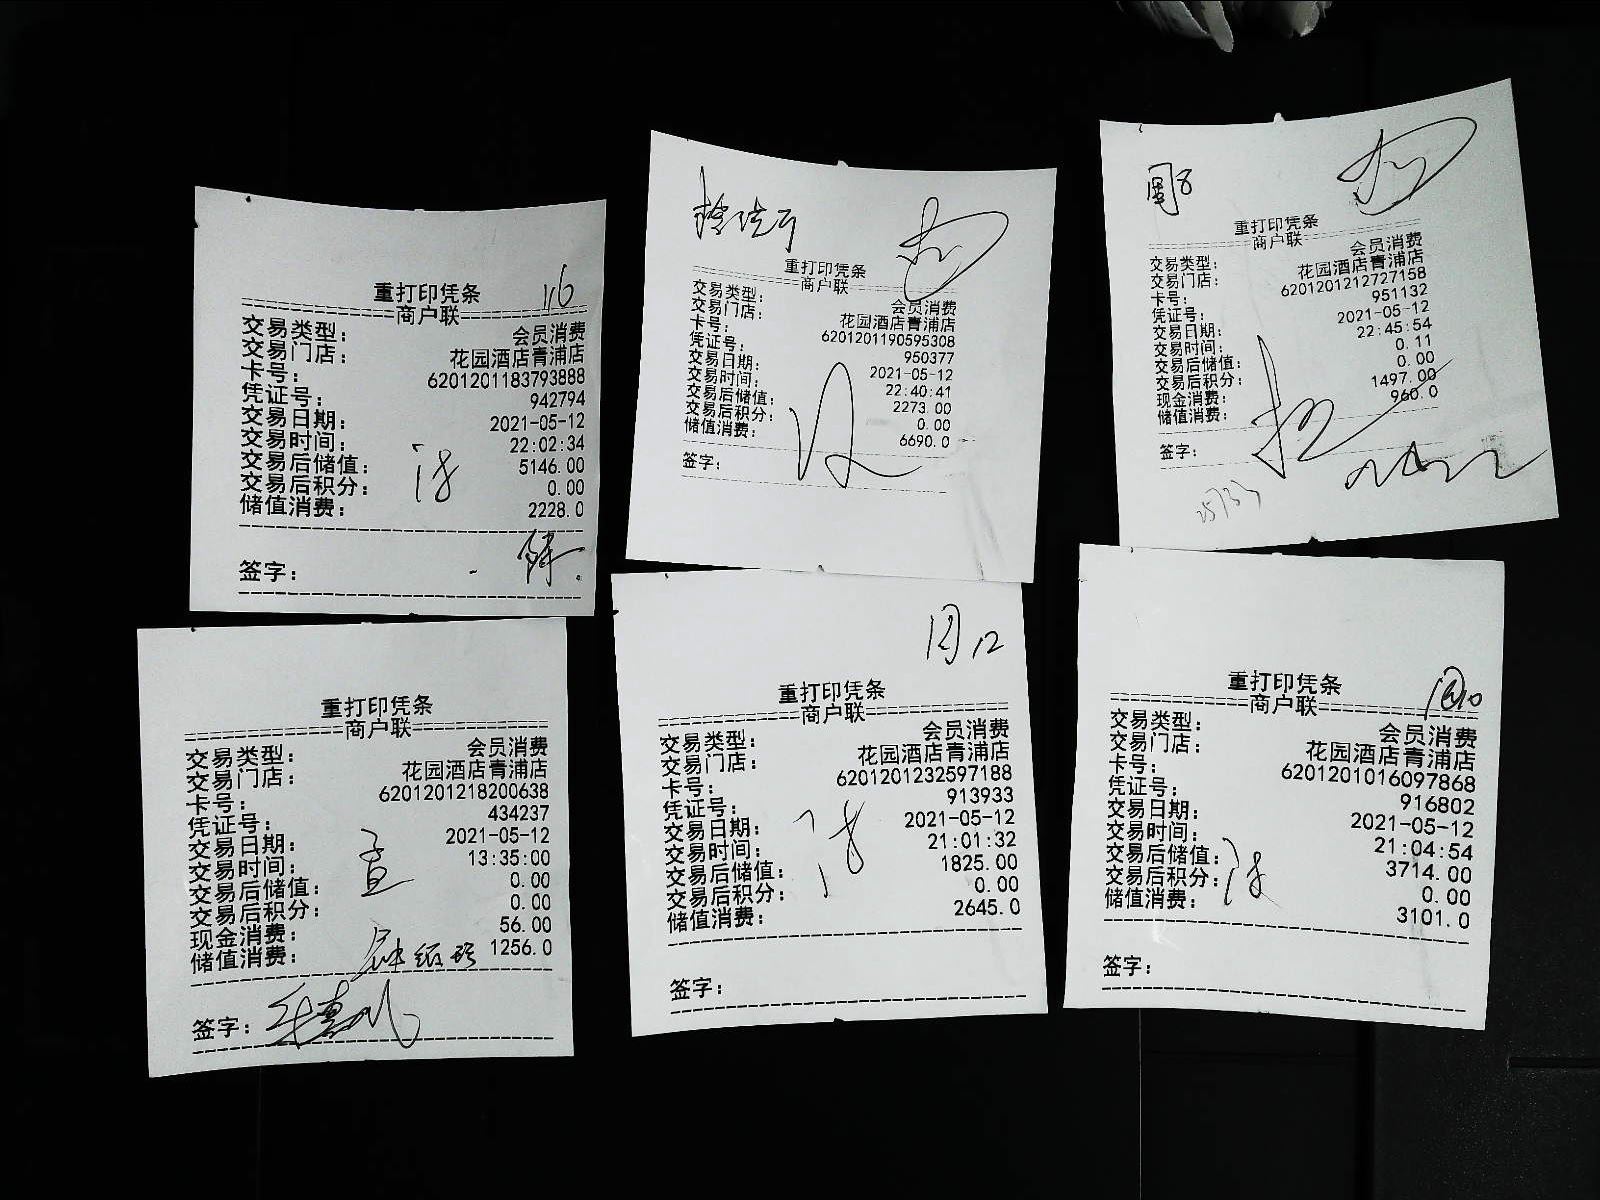 116
重打印凭条
商户联
交易类型: 会员消费
交易门店: 花园酒店青浦店
卡号: 6201201183793888
凭证号: 942794
交易日期: 2021-05-12
交易时间: 22:02:34
交易后储值: 5146.00
交易后积分: 0.00
储值消费: 2228.0
签字:
重打印凭条
商户联
交易类型: 会员消费
交易门店: 花园酒店青浦店
卡号: 6201201190595308
凭证号: 950377
交易日期: 2021-05-12
交易时间: 22:40:41
交易后储值: 2273.00
交易后积分: 0.00
储值消费: 6690.0
签字:
重打印凭条
商户联
交易类型: 会员消费
交易门店: 花园酒店青浦店
卡号: 6201201212727158
凭证号: 951132
交易日期: 2021-05-12
交易时间: 22:45:54
交易后储值: 0.11
交易后积分: 0.00
现金消费: 1497.00
储值消费: 960.0
签字:
重打印凭条
商户联
交易类型: 会员消费
交易门店: 花园酒店青浦店
卡号: 6201201218200638
凭证号: 434237
交易日期: 2021-05-12
交易时间: 13:35:00
交易后储值: 0.00
交易后积分: 0.00
现金消费: 56.00
储值消费: 1256.0
签字:
重打印凭条
商户联
交易类型: 会员消费
交易门店: 花园酒店青浦店
卡号: 6201201232597188
凭证号: 913933
交易日期: 2021-05-12
交易时间: 21:01:32
交易后储值: 1825.00
交易后积分: 0.00
储值消费: 2645.0
签字:
重打印凭条
商户联
交易类型: 会员消费
交易门店: 花园酒店青浦店
卡号: 6201201016097868
凭证号: 916802
交易日期: 2021-05-12
交易时间: 21:04:54
交易后储值: 3714.00
交易后积分: 0.00
储值消费: 3101.0
签字: